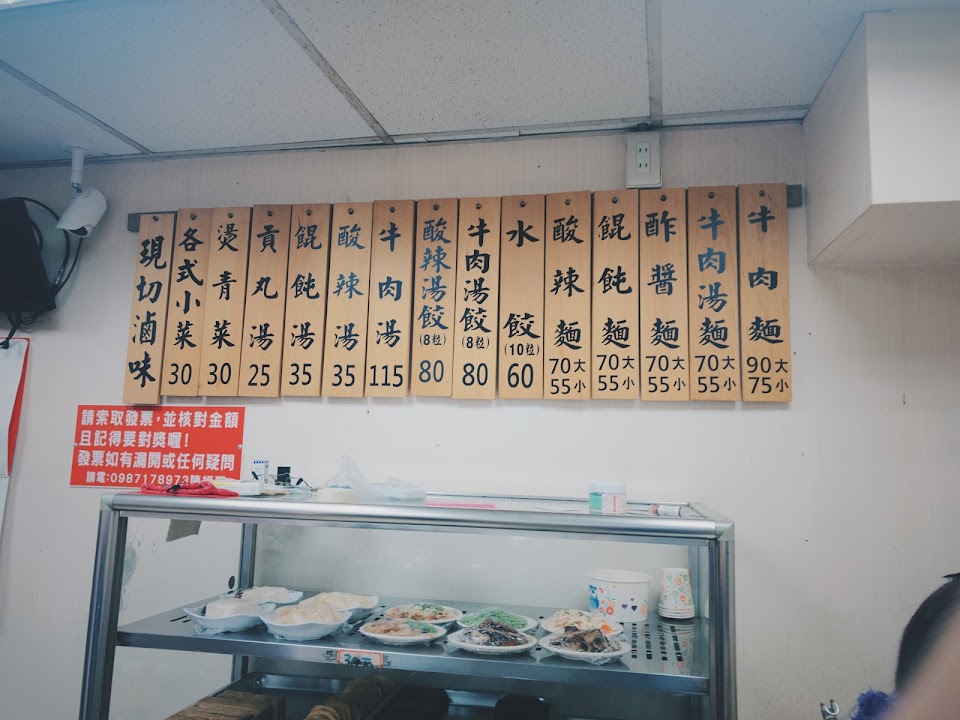 牛肉麵
90大
75小
牛肉湯麵
70大
55小
酢醬麵
70大
55小
餛飩麵
70大
55小
酸辣麵
70大
55小
水餃
(10粒)
60
牛肉湯餃
(8粒)
80
酸辣湯餃
(8粒)
80
牛肉湯
115
酸辣湯
35
餛飩湯
35
貢丸湯
25
燙青菜
30
各式小菜
30
現切滷味
請索取發票，並核對金額
且記得要對獎喔！
發票如有漏開或任何疑問
請電:0987178973陳